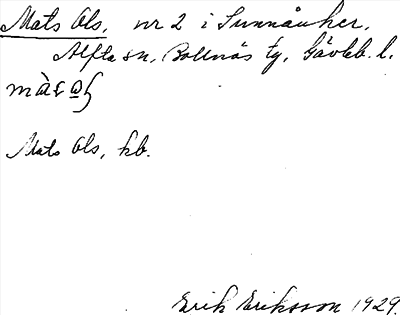 Mats Ols, nr 2 i Sunnanåker,
Alfta sn, Bollnäs tg, Gävleb. l.
Mats Ols, kb.
Erik Eriksson 1929.